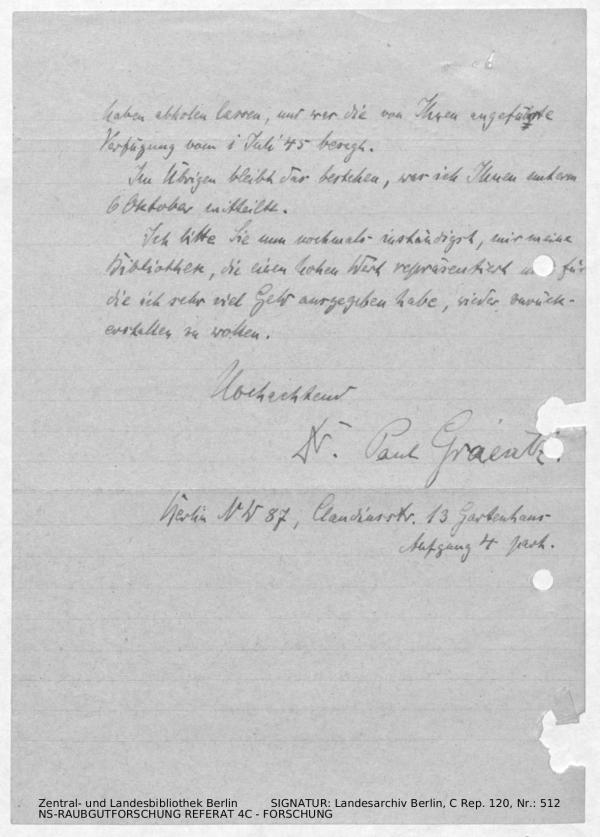 haben abholen lassen, und wer die von Ihnen angeführte
Verfügung vom 1 Juli 45 besagt.
Im Übrigen bleibt das bestehen, was ich Ihnen unterm
6 Oktober mitteilte.
Ich bitte Sie nun nochmals inständigst, mir meine
Bibliothek, die einen hohen Wert repräsentiert für
die ich sehr viel Geld ausgegeben habe, wieder zurück-
erstatten zu wollen.
Hochachtend
Dr. Paul Graentz.
Berlin NW 87, Claudiusstr. 13 Gartenhaus
Aufgang 4 part.
Zentral- und Landesbibliothek Berlin SIGNATUR: Landesarchiv Berlin, C Rep. 120, Nr.: 512
NS-RAUBGUTFORSCHUNG REFERAT 4C - FORSCHUNG